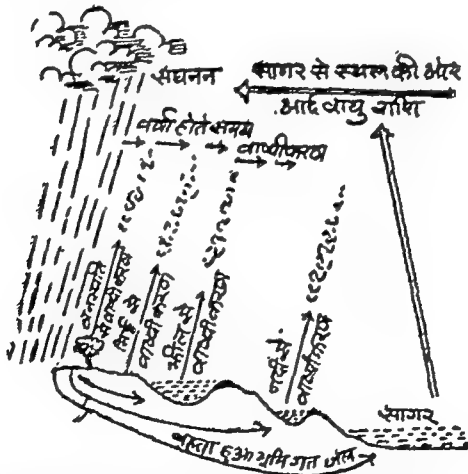 संघनन
सागर से स्थल की ओर
आर्द्र वायु राशि
वर्षा होते समय
वाष्पीकरण
वनस्पति
से वाष्पीकरण
मिट्टी से
वाष्पीकरण
झील से
वाष्पीकरण
नदी से
वाष्पीकरण
सागर
बहता हुआ भूमिगत जल